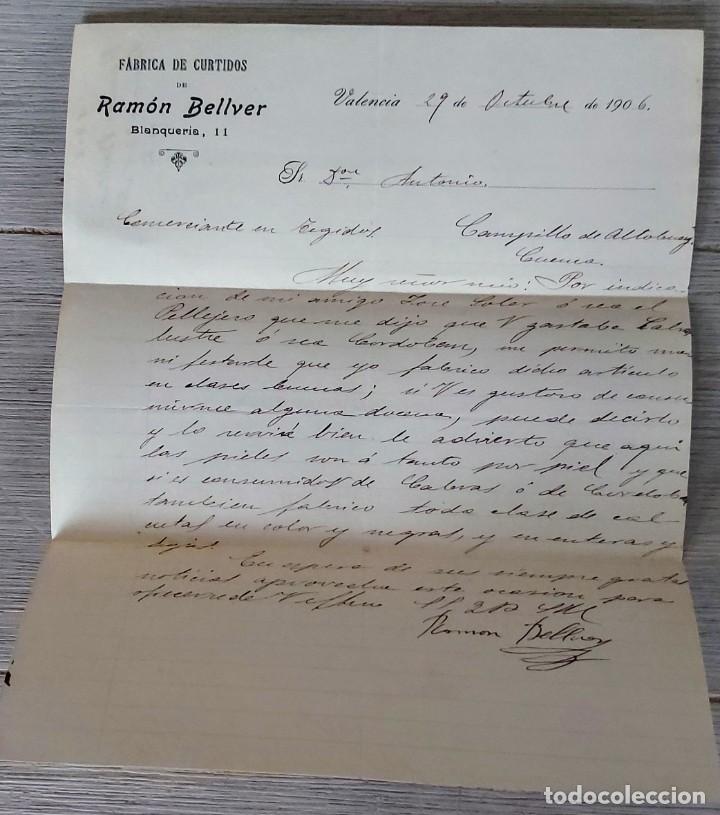 FÁBRICA DE CURTIDOS
DE
Ramón Bellver
Blanquería, 11
Valencia 29 de Octubre de 1906.
Sr. Don Antonio
Comerciante en Tegidos. Campillo de Altobuey
Cuenca.
Muy señor mio: Por indica-
cion de mi amigo Jose Soler ó sea el
Pellejero que me dijo que V gastaba Cabra
lustre ó sea Cordoban, me permito ma-
nifestarle que yo fabrico dicho articulo
en clases buenas; si V es gustoso de consu-
mirme alguna docena, puede decirlo
y lo remiré bien le advierto que aqui
las pieles son á tanto por piel y que
si es consumidor de Cabras ó de Cordoba
tambien fabrico toda clase de
en color y negras, y en enteras y
En espera de sus siempre gratas
noticias aprovecha esta ocasion para
ofrecerse de V
Ramon Bellver
todocoleccion
todocoleccion.net